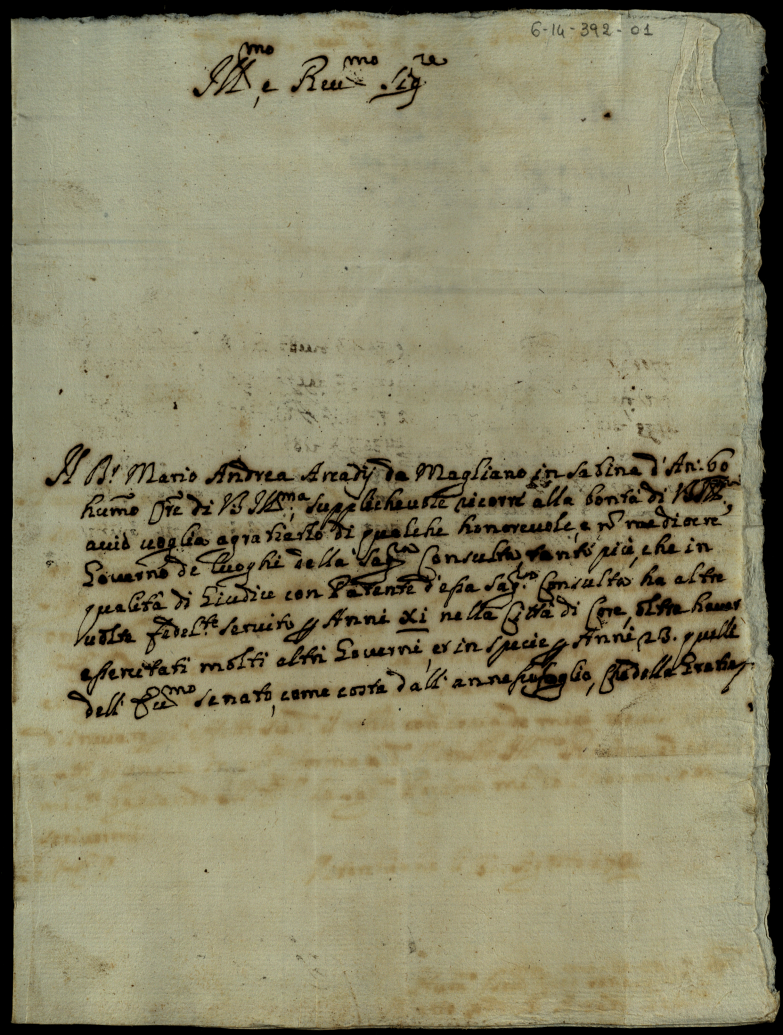 6-14-392-01
Ill.mo e Reu.mo Sig.re
Il D.r Mario Andrea Arcadij da Magliano in Sabina d'An: 60
hum.o Ore di VS Ill.ma, supplicheuole ricorre alla bontà di VS Ill.ma,
acciò uoglia agratiarlo di qualche honoreuole, e nõ mediocre
Gouerno de luoghi della Sag.ra Consulta, tanto più, che in
qualità di Giudice con Patente d'essa Sag.ra Consulta ha altre
uolte fedel.te seruito p Anni xi nella Città di Core, oltre hauer
essercitati molti altri Gouerni, et in specie p Anni 23. quelli
dell' Ecc.mo Senato, come costa dall' annesso foglio, Che della Gratia